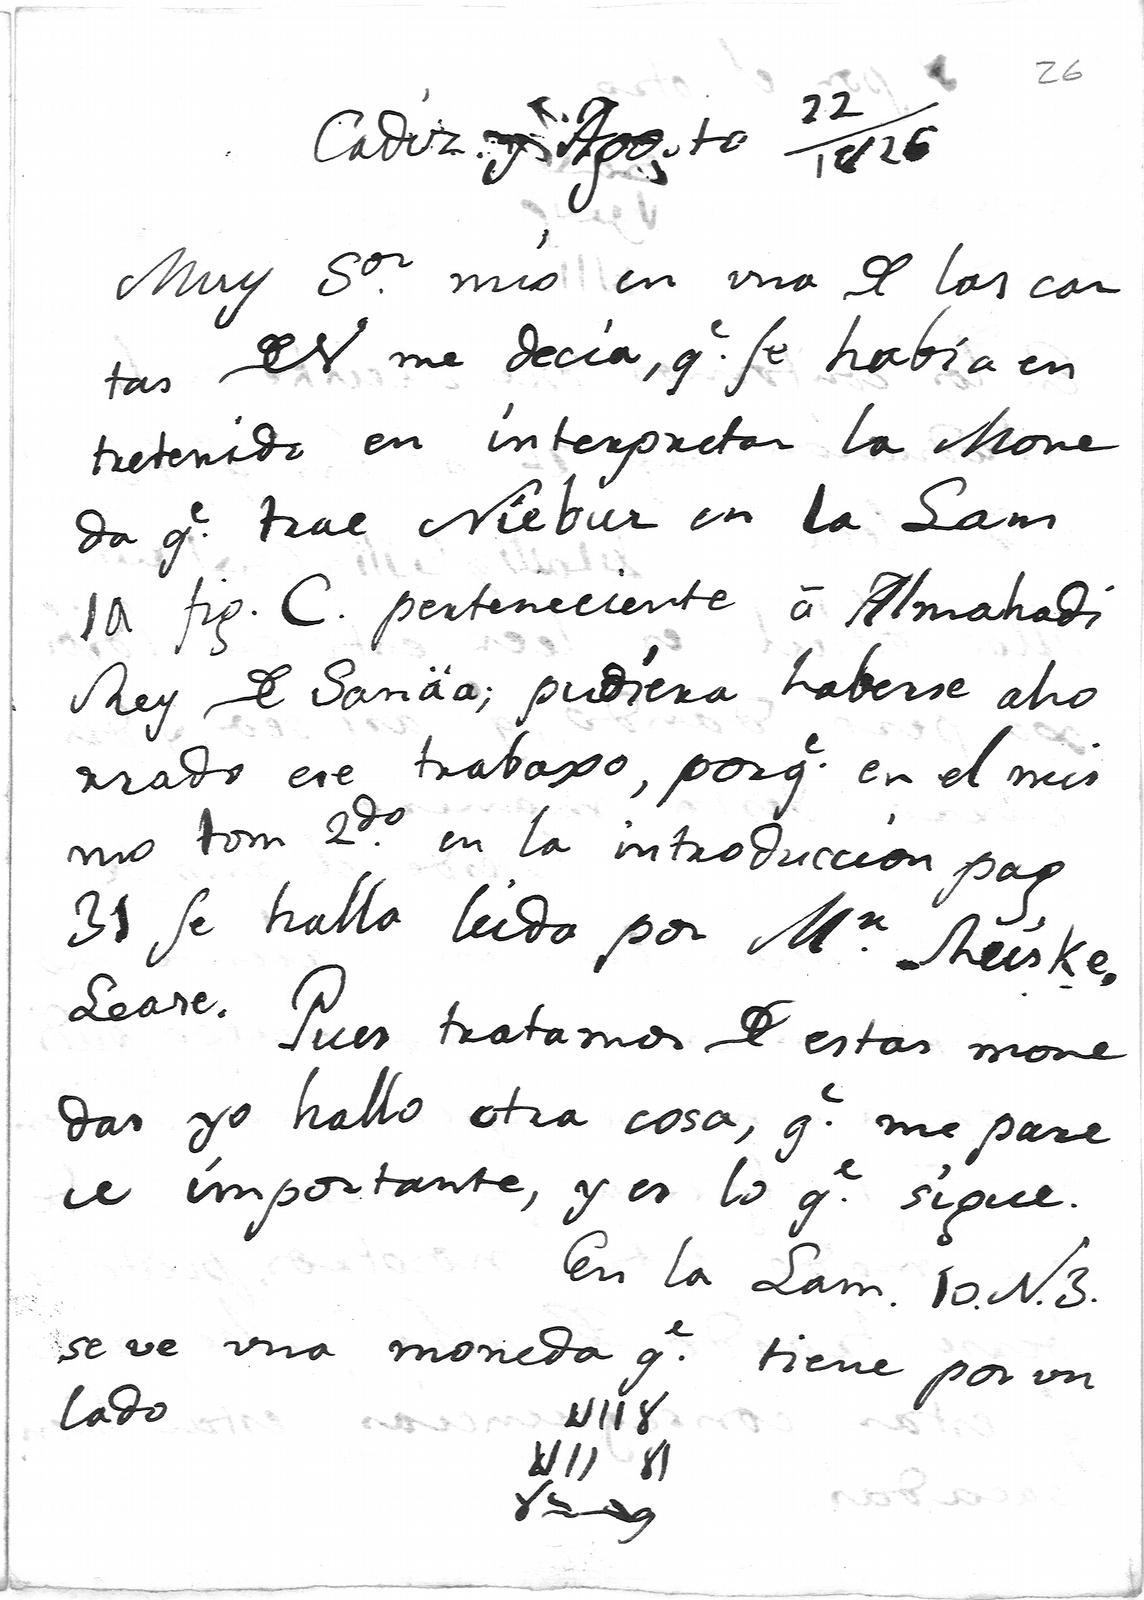 26
Cadiz y Agosto 22/1826
Muy S.or mío en vna de las car
tas de V me decía, q.e se había en
tretenido en interpretar la Mone
da q.e trae Niebur en la Lam
10 fig. C. perteneciente ā Almahadi
Rey de Sanäa; pudiera haberse aho
rrado ese trabaxo, porq.e en el mis
mo tom 2.do en la introducción pag
31 se halla leida por M.r Reiske.
Lease. Pues tratamos de estas mone
das yo hallo otra cosa, q.e me pare
ce importante, y es lo q.e sigue.
En la Lam. 10. N. 3.
se ve vna moneda q.e tiene por vn
lado